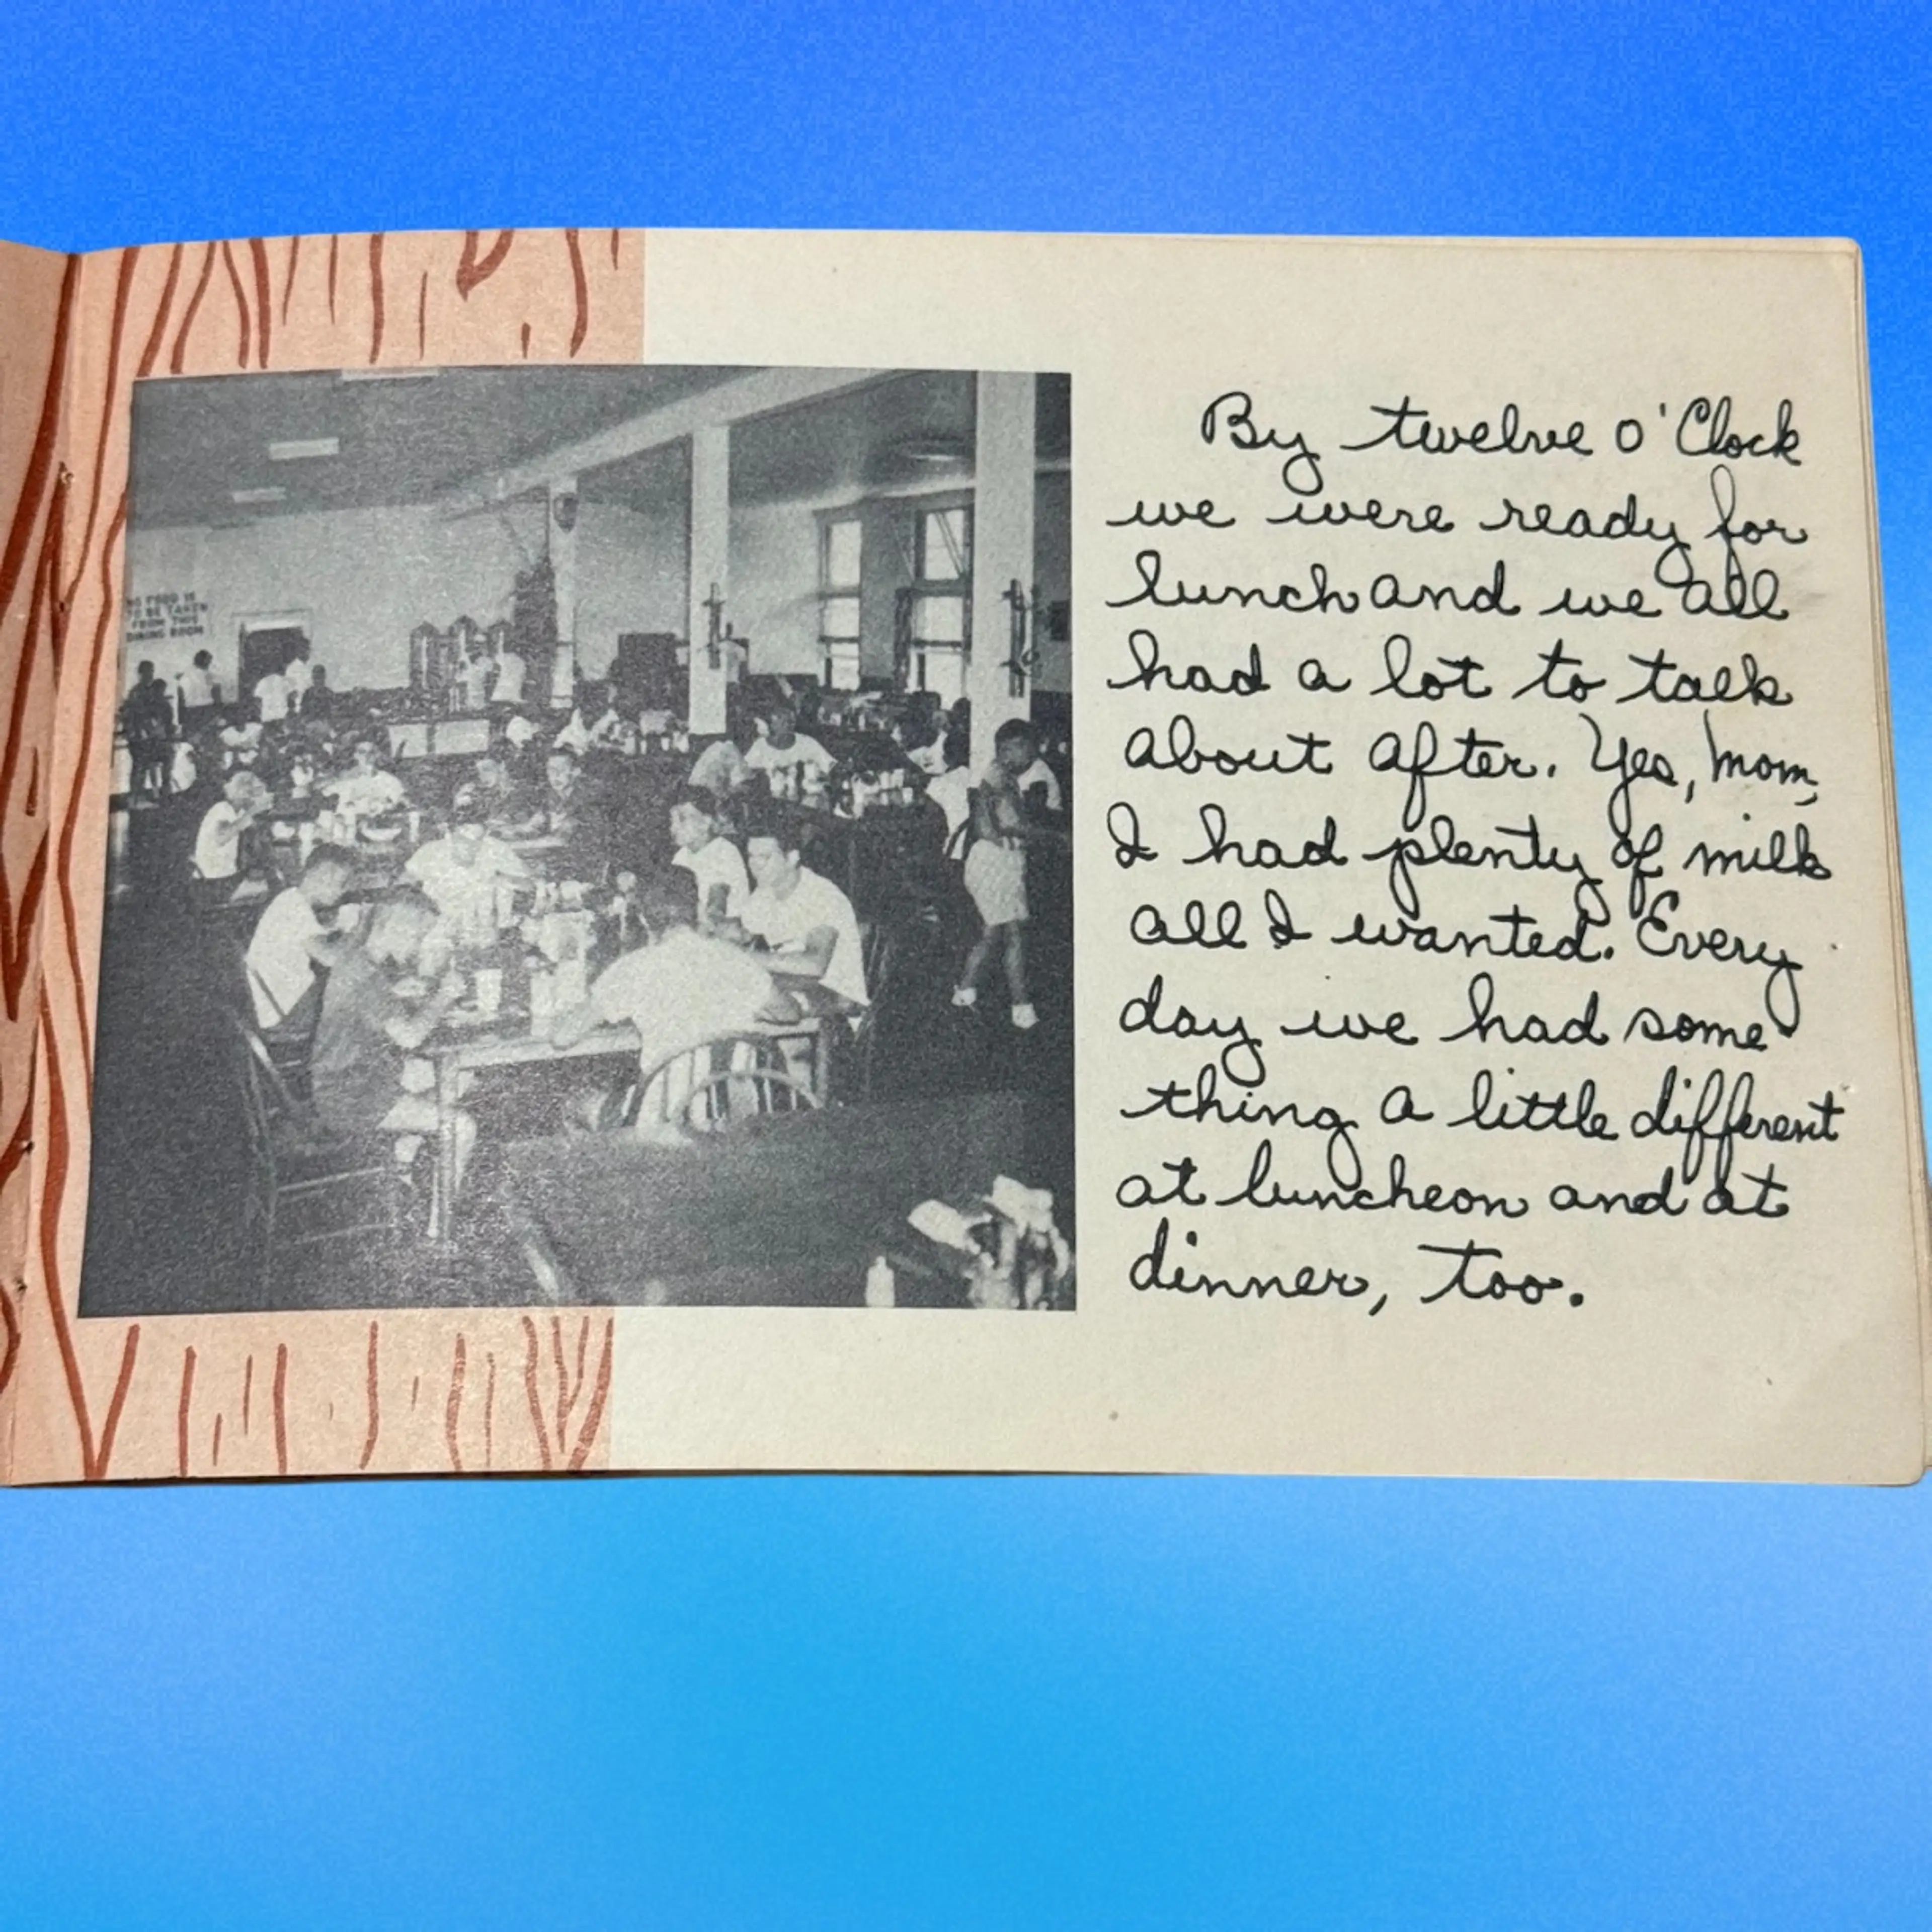 NO FOOD IS
TO BE TAKEN
FROM THIS
DINING ROOM
By twelve o'Clock
we were ready for
lunch and we all
had a lot to talk
about after. Yes, mom,
I had plenty of milk
all I wanted. Every
day we had some
thing a little different
at luncheon and at
dinner, too.